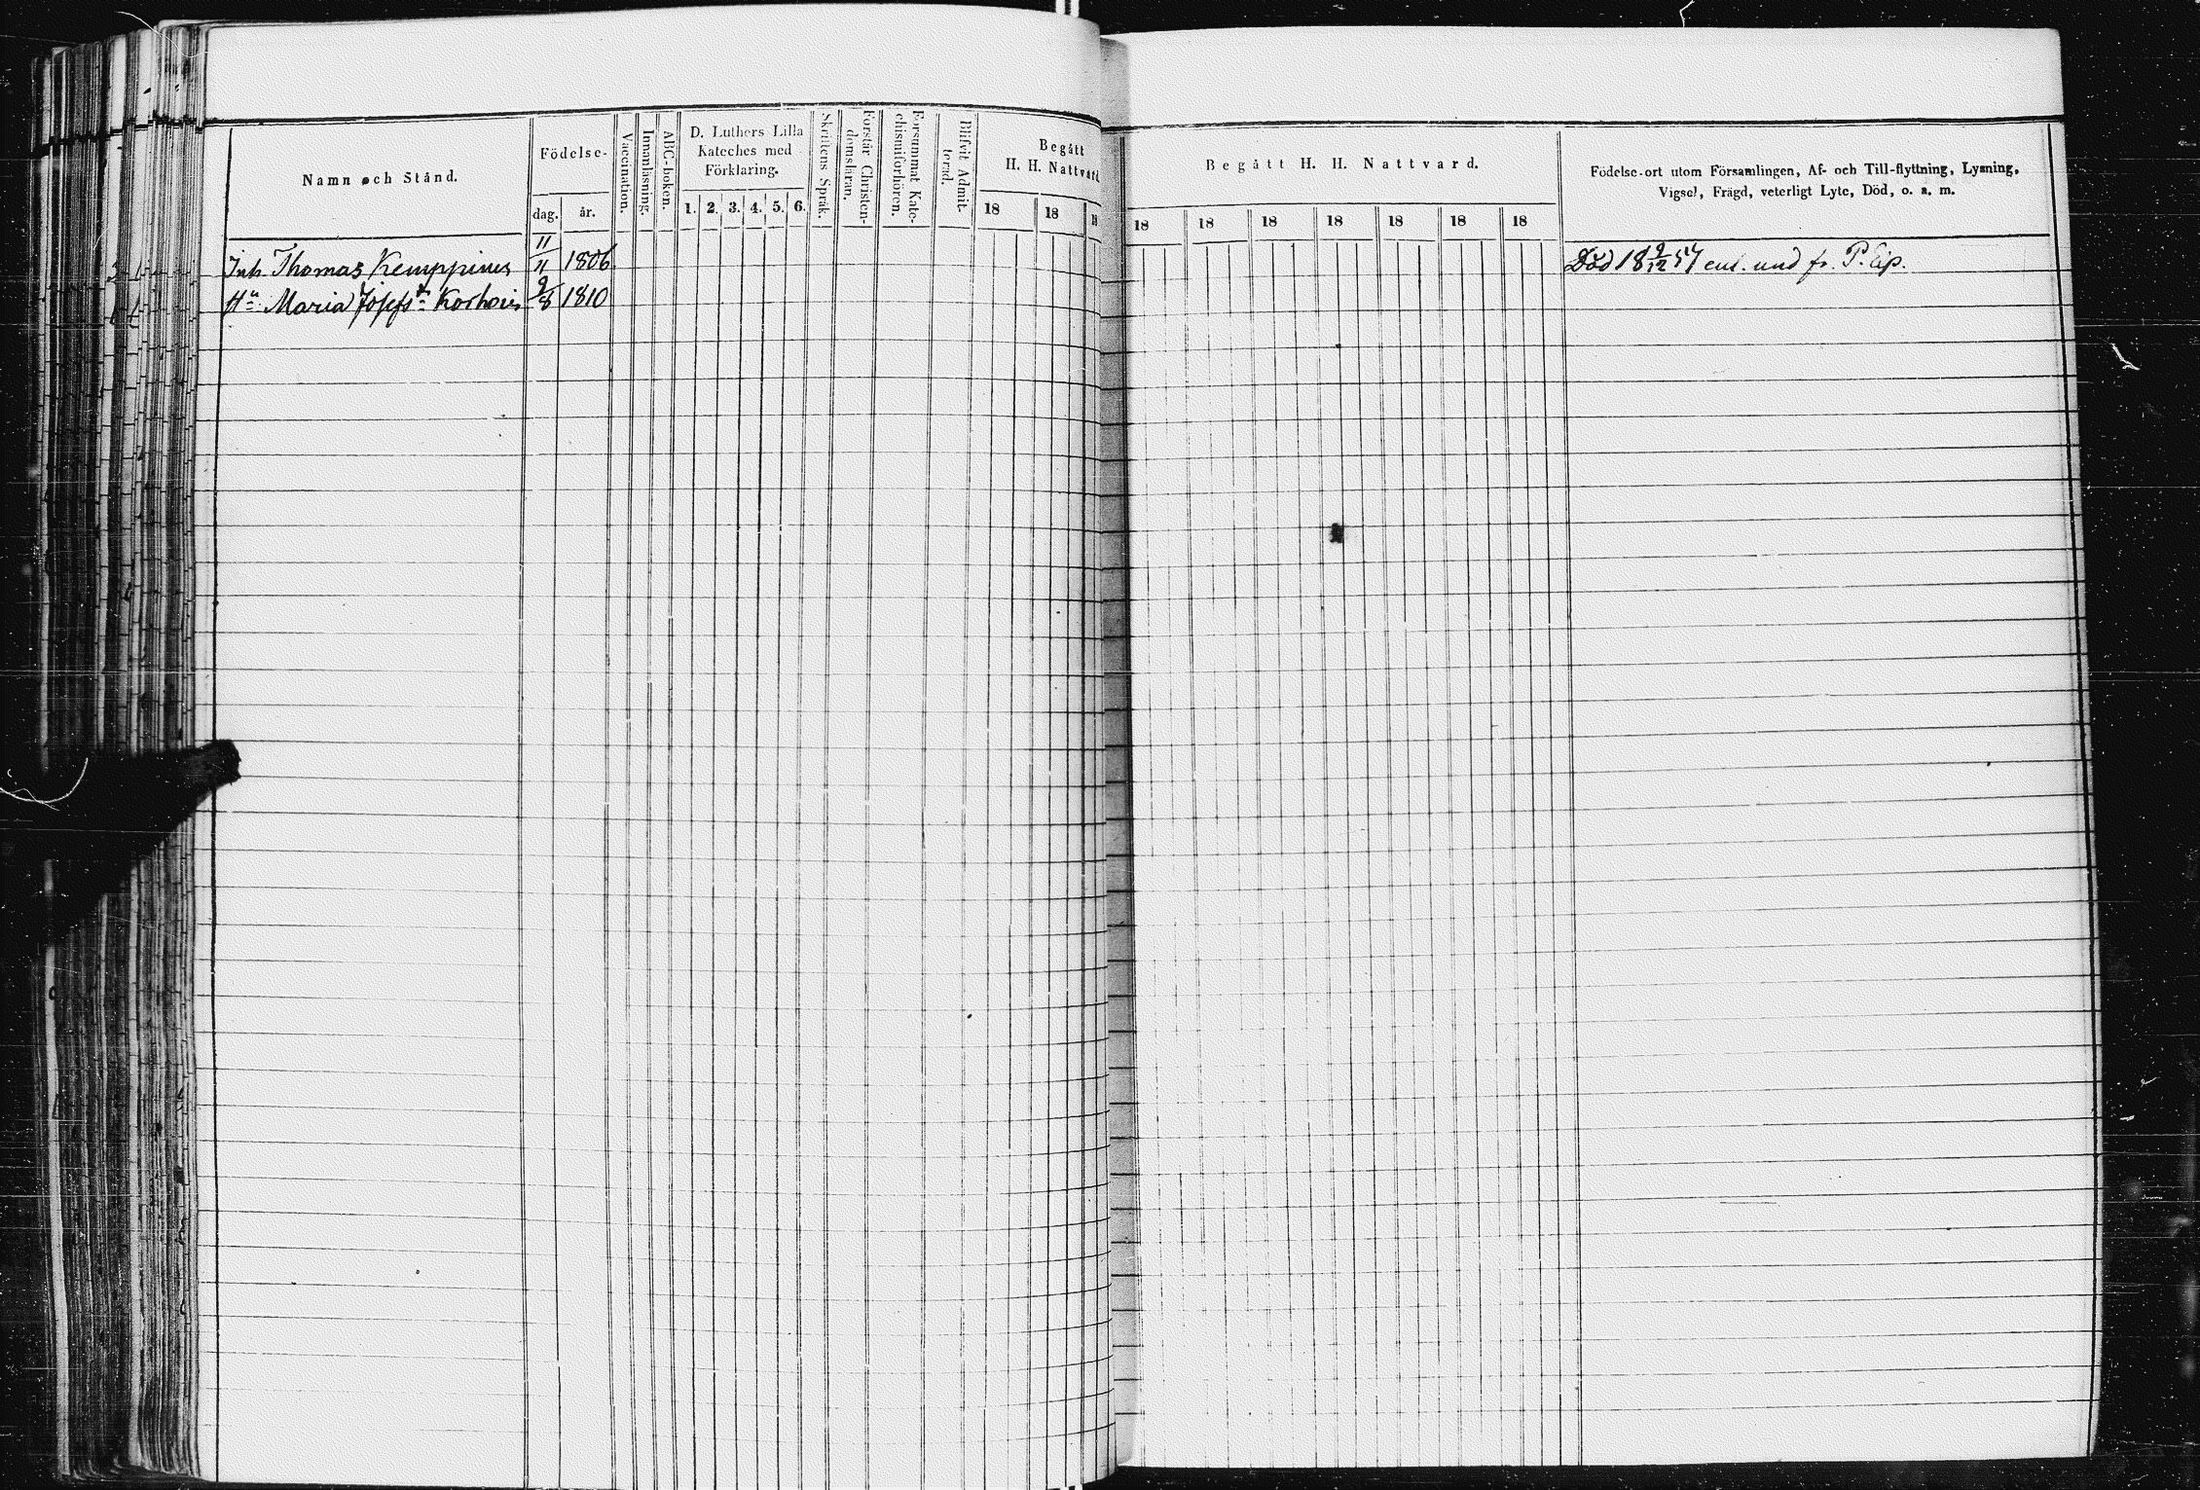 Namn och Stånd.
Födelse-
dag. år.
Vaccination.
Innanläsning.
ABC-boken.
D. Luthers Lilla
Kateches med
Förklaring.
1. 2. 3. 4. 5. 6.
Skriftens Språk.
Förstår Christen-
domsläran.
Försummat Kate-
chismiförhören.
Blifvit Admit-
terad.
Begått
H. H. Nattvard.
18 18 18
Begått H. H. Nattvard.
18 18 18 18 18 18 18
Födelse-ort utom Församlingen, Af- och Till-flyttning, Lysning,
Vigsel, Frägd, veterligt Lyte, Död, o. s. m.
Inh. Thomas Kemppinen 11/4 1806 Död 18 9/12 57 enl. und fr.
Hu Maria Josefsdr 9/8 1810